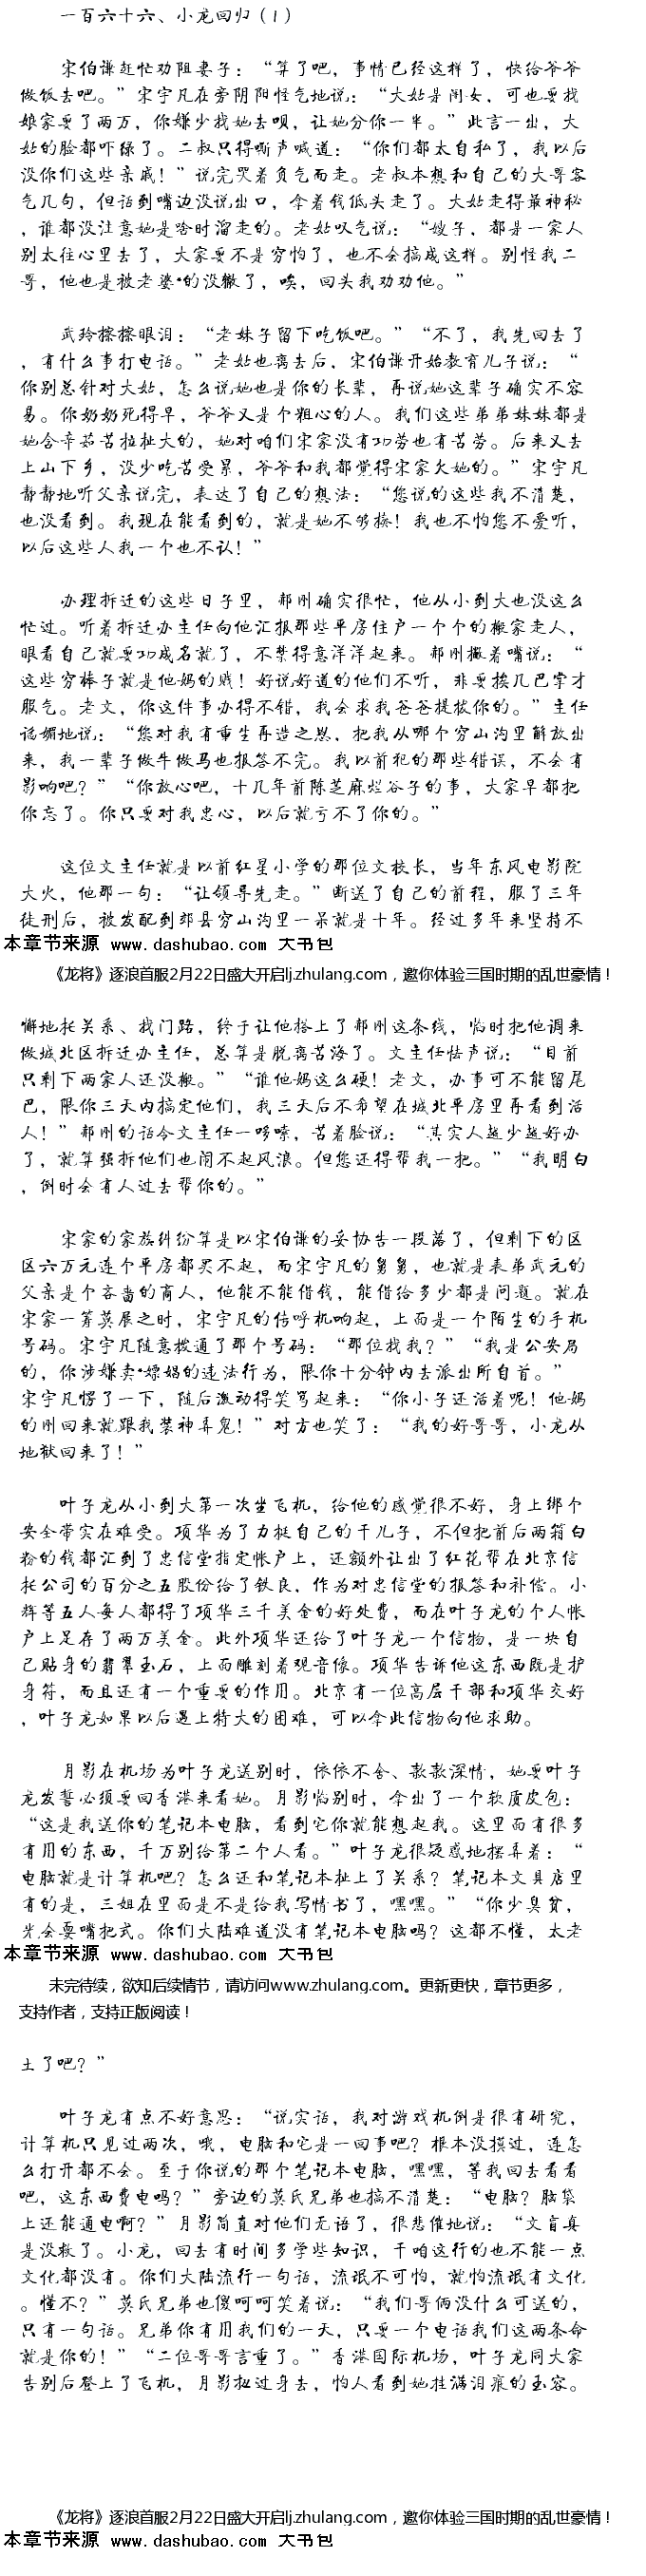 一百六十六、小龙回归（1）
宋伯谦赶忙劝阻妻子：“算了吧，事情已经这样了，快给爷爷
做饭去吧。”宋宇凡在旁阴阳怪气地说：“大姑是闺女，可也要找
娘家要了两万，你嫌少找她去呗，让她分你一半。”此言一出，大
姑的脸都吓绿了。二叔只得嘶声喊道：“你们都太自私了，我以后
没你们这些亲戚！”说完哭着负气而走。老叔本想和自己的大哥客
气几句，但话到嘴边没说出口，拿着钱低头走了。大姑走得最神秘
，谁都没注意她是啥时溜走的。老姑叹气说：“嫂子，都是一家人
别太往心里去了，大家要不是穷怕了，也不会搞成这样。别怪我二
哥，他也是被老婆·的没辙了，唉，回头我劝劝他。”
武玲擦擦眼泪：“老妹子留下吃饭吧。”“不了，我先回去了
，有什么事打电话。”老姑也离去后，宋伯谦开始教育儿子说：“
你别总针对大姑，怎么说她也是你的长辈，再说她这辈子确实不容
易。你奶奶死得早，爷爷又是个粗心的人。我们这些弟弟妹妹都是
她含辛茹苦拉扯大的，她对咱们宋家没有功劳也有苦劳。后来又去
上山下乡，没少吃苦受累，爷爷和我都觉得宋家欠她的。”宋宇凡
静静地听父亲说完，表达了自己的想法：“您说的这些我不清楚，
也没看到。我现在能看到的，就是她不够揍！我也不怕您不爱听，
以后这些人我一个也不认！”
办理拆迁的这些日子里，郝刚确实很忙，他从小到大也没这么
忙过。听着拆迁办主任向他汇报那些平房住户一个个的搬家走人，
眼看自己就要功成名就了，不禁得意洋洋起来。郝刚撇着嘴说：“
这些穷棒子就是他妈的贱！好说好道的他们不听，非要挨几巴掌才
服气。老文，你这件事办得不错，我会求我爸爸提拔你的。”主任
谄媚地说：“您对我有重生再造之恩，把我从哪个穷山沟里解放出
来，我一辈子做牛做马也报答不完。我以前犯的那些错误，不会有
影响吧？”“你放心吧，十几年前陈芝麻烂谷子的事，大家早都把
你忘了。你只要对我忠心，以后就亏不了你的。”
这位文主任就是以前红星小学的那位文校长，当年东风电影院
大火，他那一句：“让领导先走。”断送了自己的前程，服了三年
徒刑后，被发配到郊县穷山沟里一呆就是十年。经过多年来坚持不
本章节来源 www.dashubao.com 大书包
《龙将》逐浪首服2月22日盛大开启lj.zhulang.com，邀你体验三国时期的乱世豪情！
懈地托关系、找门路，终于让他搭上了郝刚这条线，临时把他调来
做城北区拆迁办主任，总算是脱离苦海了。文主任怯声说：“目前
只剩下两家人还没搬。”“谁他妈这么硬！老文，办事可不能留尾
巴，限你三天内搞定他们，我三天后不希望在城北平房里再看到活
人！”郝刚的话令文主任一哆嗦，苦着脸说：“其实人越少越好办
了，就算强拆他们也闹不起风浪。但您还得帮我一把。”“我明白
，倒时会有人过去帮你的。”
宋家的家族纠纷算是以宋伯谦的妥协告一段落了，但剩下的区
区六万元连个平房都买不起，而宋宇凡的舅舅，也就是表弟武元的
父亲是个吝啬的商人，他能不能借钱，能借给多少都是问题。就在
宋家一筹莫展之时，宋宇凡的传呼机响起，上面是一个陌生的手机
号码。宋宇凡随意拨通了那个号码：“那位找我？”“我是公安局
的，你涉嫌卖·嫖娼的违法行为，限你十分钟内去派出所自首。”
宋宇凡愣了一下，随后激动得笑骂起来：“你小子还活着呢！他妈
的刚回来就跟我装神弄鬼！”对方也笑了：“我的好哥哥，小龙从
地狱回来了！”
叶子龙从小到大第一次坐飞机，给他的感觉很不好，身上绑个
安全带实在难受。项华为了力挺自己的干儿子，不但把前后两箱白
粉的钱都汇到了忠信堂指定帐户上，还额外让出了红花帮在北京信
托公司的百分之五股份给了铁良，作为对忠信堂的报答和补偿。小
辉等五人每人都得了项华三千美金的好处费，而在叶子龙的个人帐
户上足存了两万美金。此外项华还给了叶子龙一个信物，是一块自
己贴身的翡翠玉石，上面雕刻着观音像。项华告诉他这东西既是护
身符，而且还有一个重要的作用。北京有一位高层干部和项华交好
，叶子龙如果以后遇上特大的困难，可以拿此信物向他求助。
月影在机场为叶子龙送别时，依依不舍、款款深情，她要叶子
龙发誓必须要回香港来看她。月影临别时，拿出了一个软质皮包：
“这是我送你的笔记本电脑，看到它你就能想起我。这里面有很多
有用的东西，千万别给第二个人看。”叶子龙很疑惑地摆弄着：“
电脑就是计算机吧？怎么还和笔记本扯上了关系？笔记本文具店里
有的是，三姐在里面是不是给我写情书了，嘿嘿。”“你少臭贫，
光会耍嘴把式。你们大陆难道没有笔记本电脑吗？这都不懂，太老
本章节来源 www.dashubao.com 大书包
未完待续，欲知后续情节，请访问www.zhulang.com。更新更快，章节更多，
支持作者，支持正版阅读！
土了吧？”
叶子龙有点不好意思：“说实话，我对游戏机倒是很有研究，
计算机只见过两次，哦，电脑和它是一回事吧？根本没摸过，连怎
么打开都不会。至于你说的那个笔记本电脑，嘿嘿，等我回去看看
吧，这东西费电吗？”旁边的莫氏兄弟也搞不清楚：“电脑？脑袋
上还能通电啊？”月影简直对他们无语了，很悲催地说：“文盲真
是没救了。小龙，回去有时间多学些知识，干咱这行的也不能一点
文化都没有。你们大陆流行一句话，流氓不可怕，就怕流氓有文化
。懂不？”莫氏兄弟也傻呵呵笑着说：“我们哥俩没什么可送的，
只有一句话。兄弟你有用我们的一天，只要一个电话我们这两条命
就是你的！”“二位哥哥言重了。”香港国际机场，叶子龙同大家
告别后登上了飞机，月影扭过身去，怕人看到她挂满泪痕的玉容。
《龙将》逐浪首服2月22日盛大开启lj.zhulang.com，邀你体验三国时期的乱世豪情！
本章节来源 www.dashubao.com 大书包